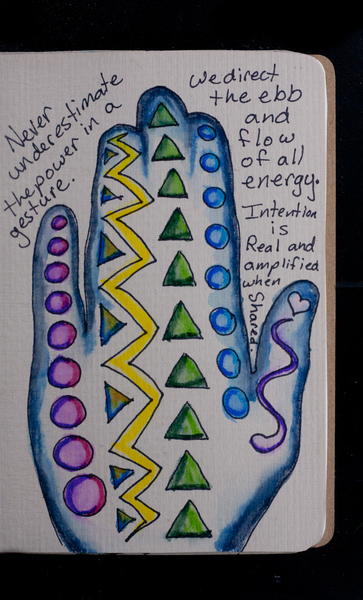 Never
underestimate
the power in a
gesture.
We direct
the ebb
and
flow
of all
energy.
Intention
is
Real and
amplified
when
Shared.